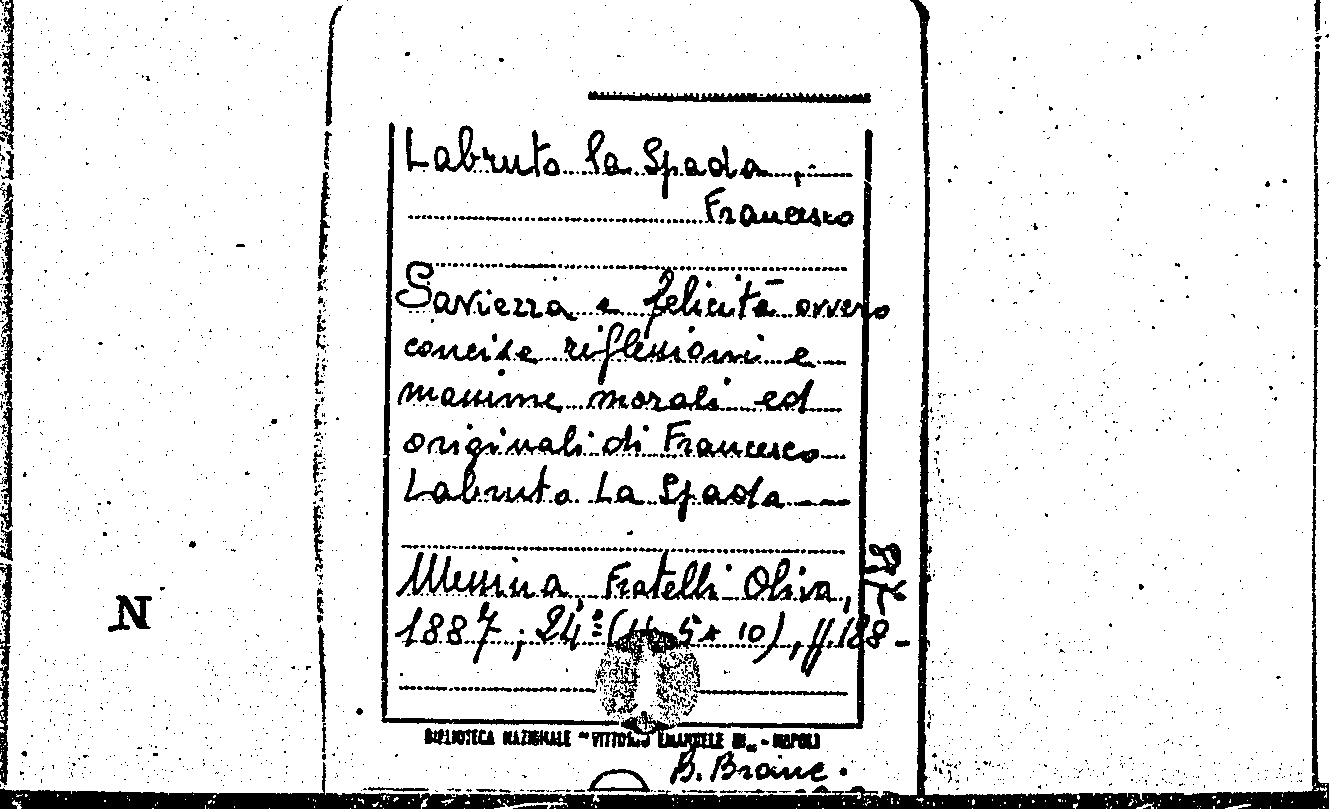 Labruto la Spada,
Francesco
Saviezza e felicità ovvero
concise riflessioni e
massime morali ed
originali di Francesco
Labruto La Spada
Messina, Fratelli Oliva,
1887; 24º (14,5 x 10), ff. 188-
N
BIBLIOTECA NAZIONALE "VITTORIO EMANUELE III" - NAPOLI